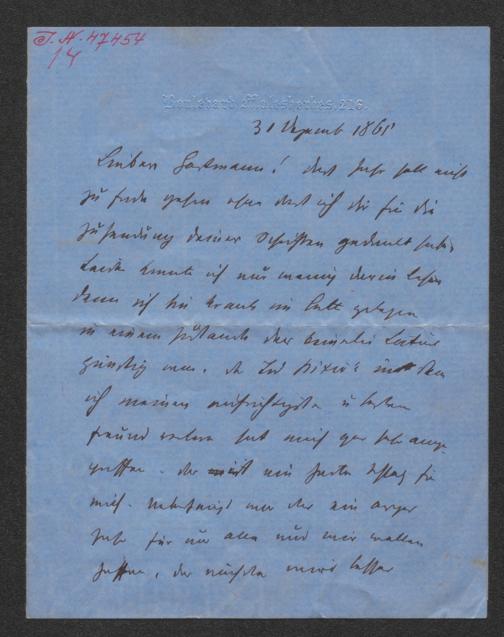 I. N. 47454
14
Boulevard Malesherbes, 216.
31 Dezemb 1865
Lieber Hartmann! das Jahr soll nicht
zu Ende gehen ohne dass ich dir für die
Zusendung deiner Schriften gedankt habe.
Leider konnte ich nur wenig darin lesen
denn ich bin krank im Bett gelegen
in einem Zustande der keinerlei Lectüre
günstig war. Der Tod Bixio's in dem
ich meinen aufrichtigsten u besten
Freund verloren hat mich gar sehr ange-
griffen. Das ist ein harter Schlag für
mich. Überhaupt war das ein arges
Jahr für uns alle und wir wollen
hoffen, das nächste wird besser